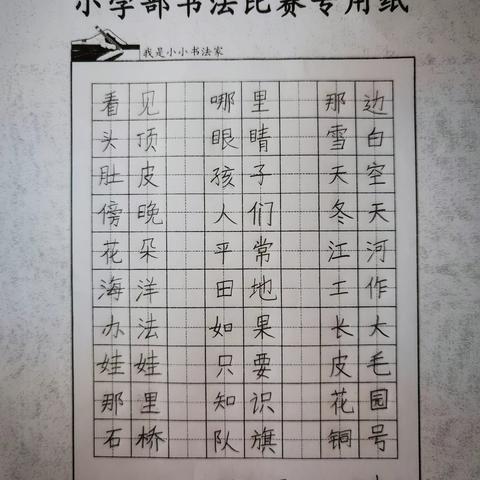 小学部书法比赛专用纸
我是小小书法家
看见 哪里 那边
头顶 眼睛 雪白
肚皮 孩子 天空
傍晚 人们 冬天
花朵 平常 江河
海洋 田地 工作
办法 如果 长大
娃娃 只要 皮毛
那里 知识 花园
石桥 队旗 铜号